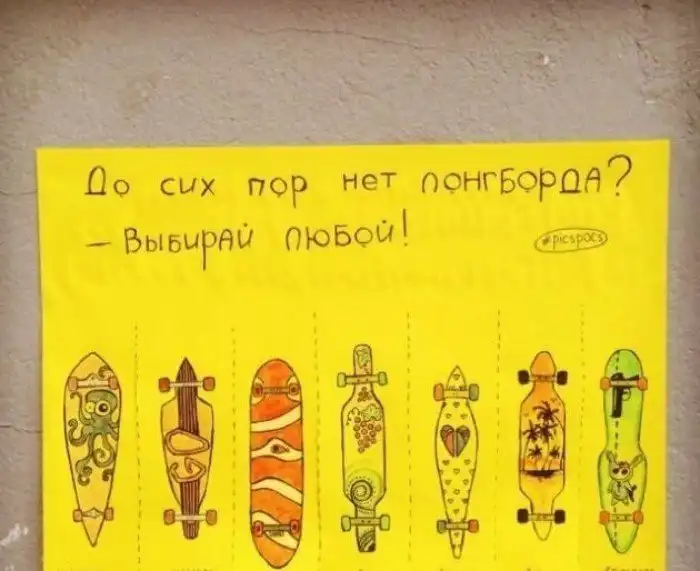 До сих пор нет лонгборда?
– Выбирай любой!
#picspacs
GO